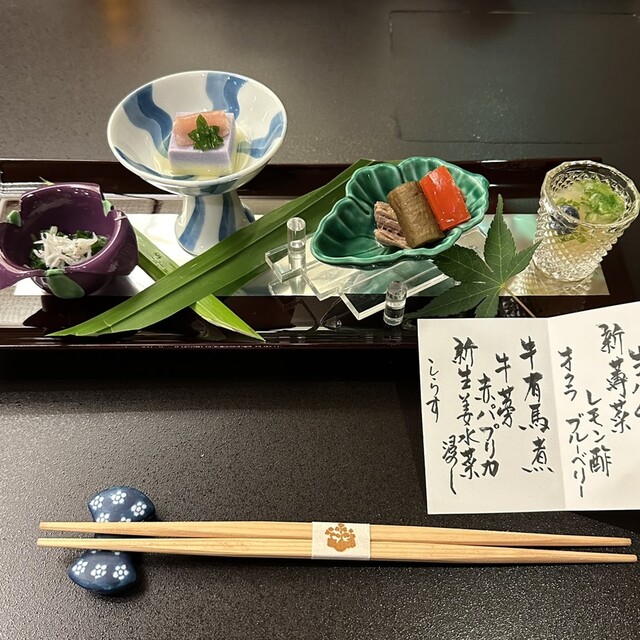 新蓴菜
レモン酢
オクラ ブルーベリー
牛有馬煮
牛蒡
赤パプリカ
新生姜水菜浸し
しらす